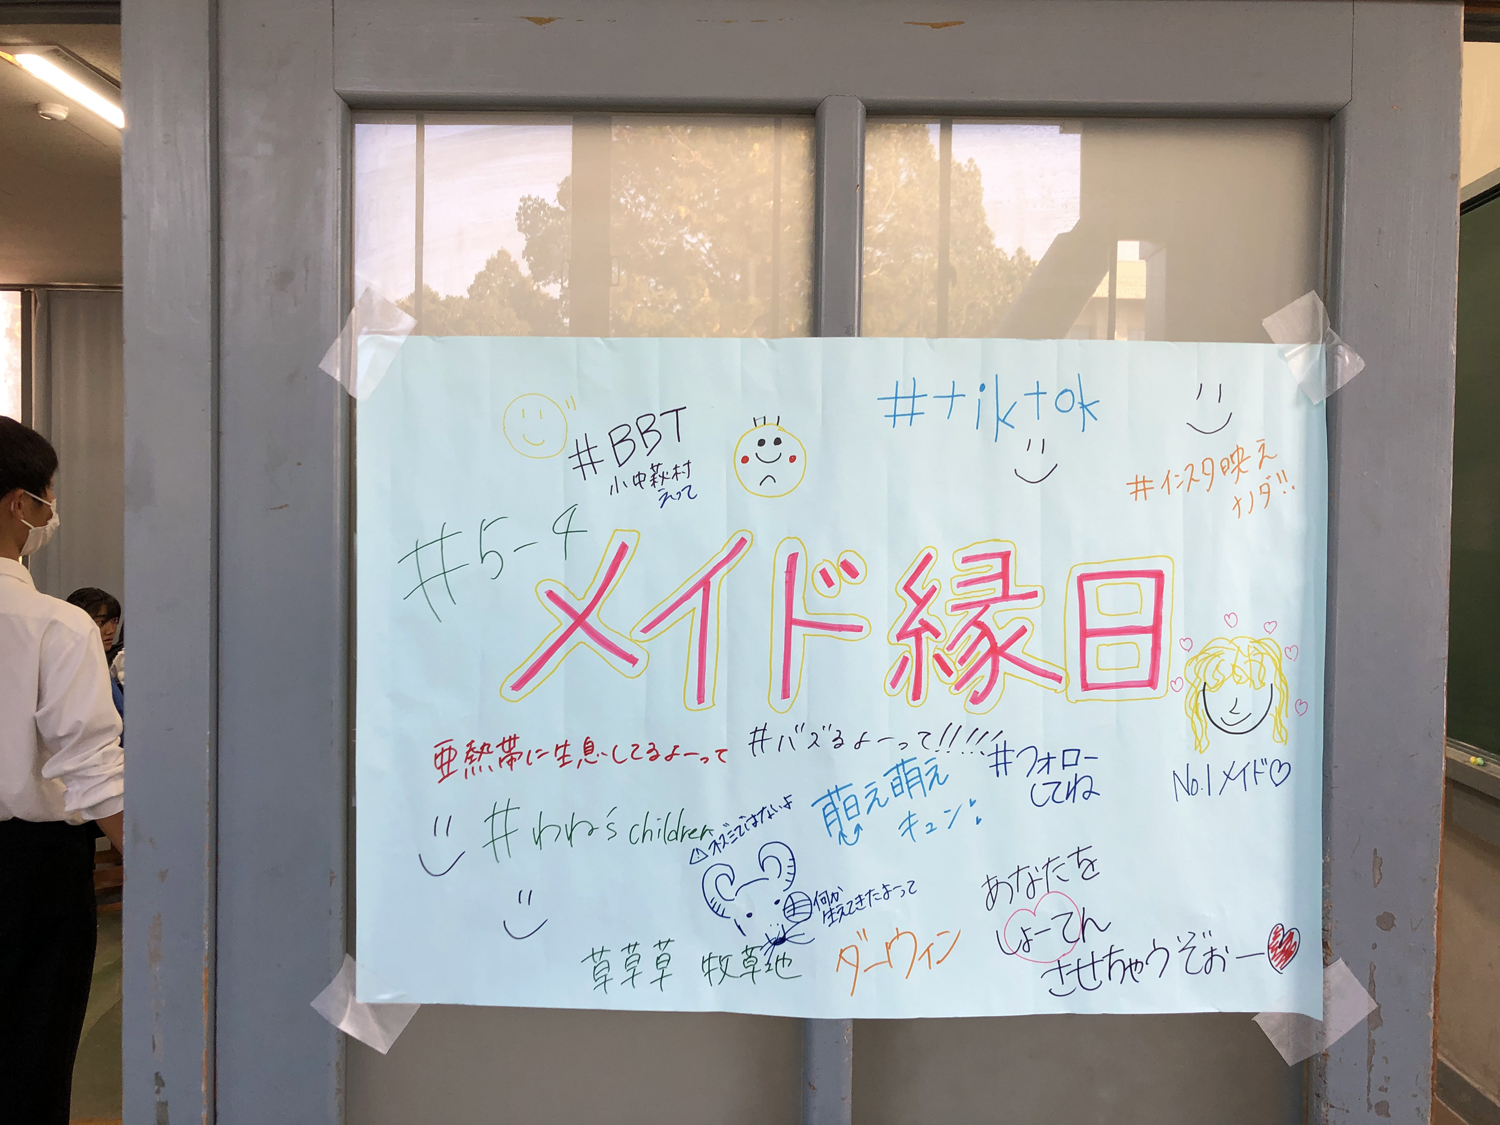 #BBT
小中萩村
えって
#tiktok
#インスタ映え
ナノダ!!
#5-4
メイド縁日
亜熱帯に生息してるよーって
#バズるよーって!!!!!
#フォロー
してね
No.1メイド♡
#わね's children
⚠ネズミではないよ
萌え萌え
キュン
何か
生えてきたよーって
草草草 牧草地
ダーウィン
あなたを
しょーてん
させちゃうぞおー